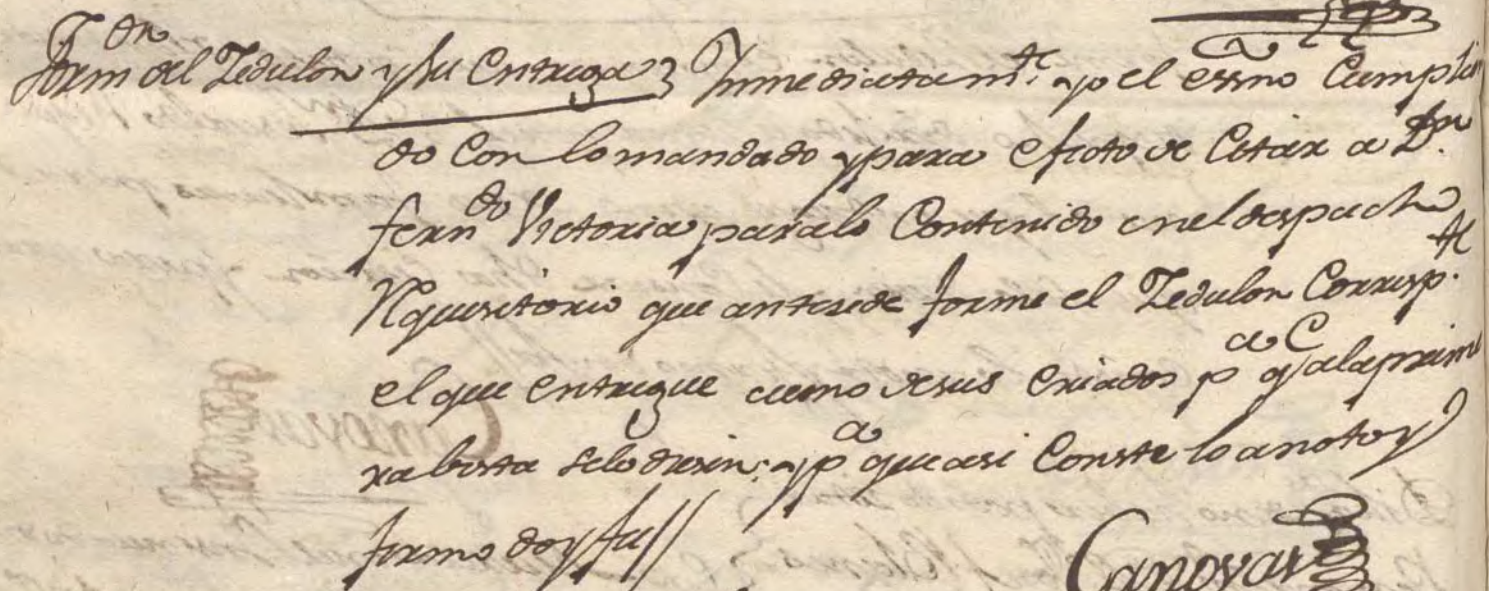 form.on del Zedulon y su Entrega } Ynmediatam.te yo el essno Cumplien
do Con lo mandado y para efecto de Citar a D.n
fern.do Victoria para lo Contenido en el despacho
Requisitorio que antesede forme el Zedulon Corresp.te
el que Entregue a uno de sus Criados p.a q.e a la prime
ra bista se lo diesen: y p.a que asi Conste lo anoto y
firmo doy fee //
Canovas